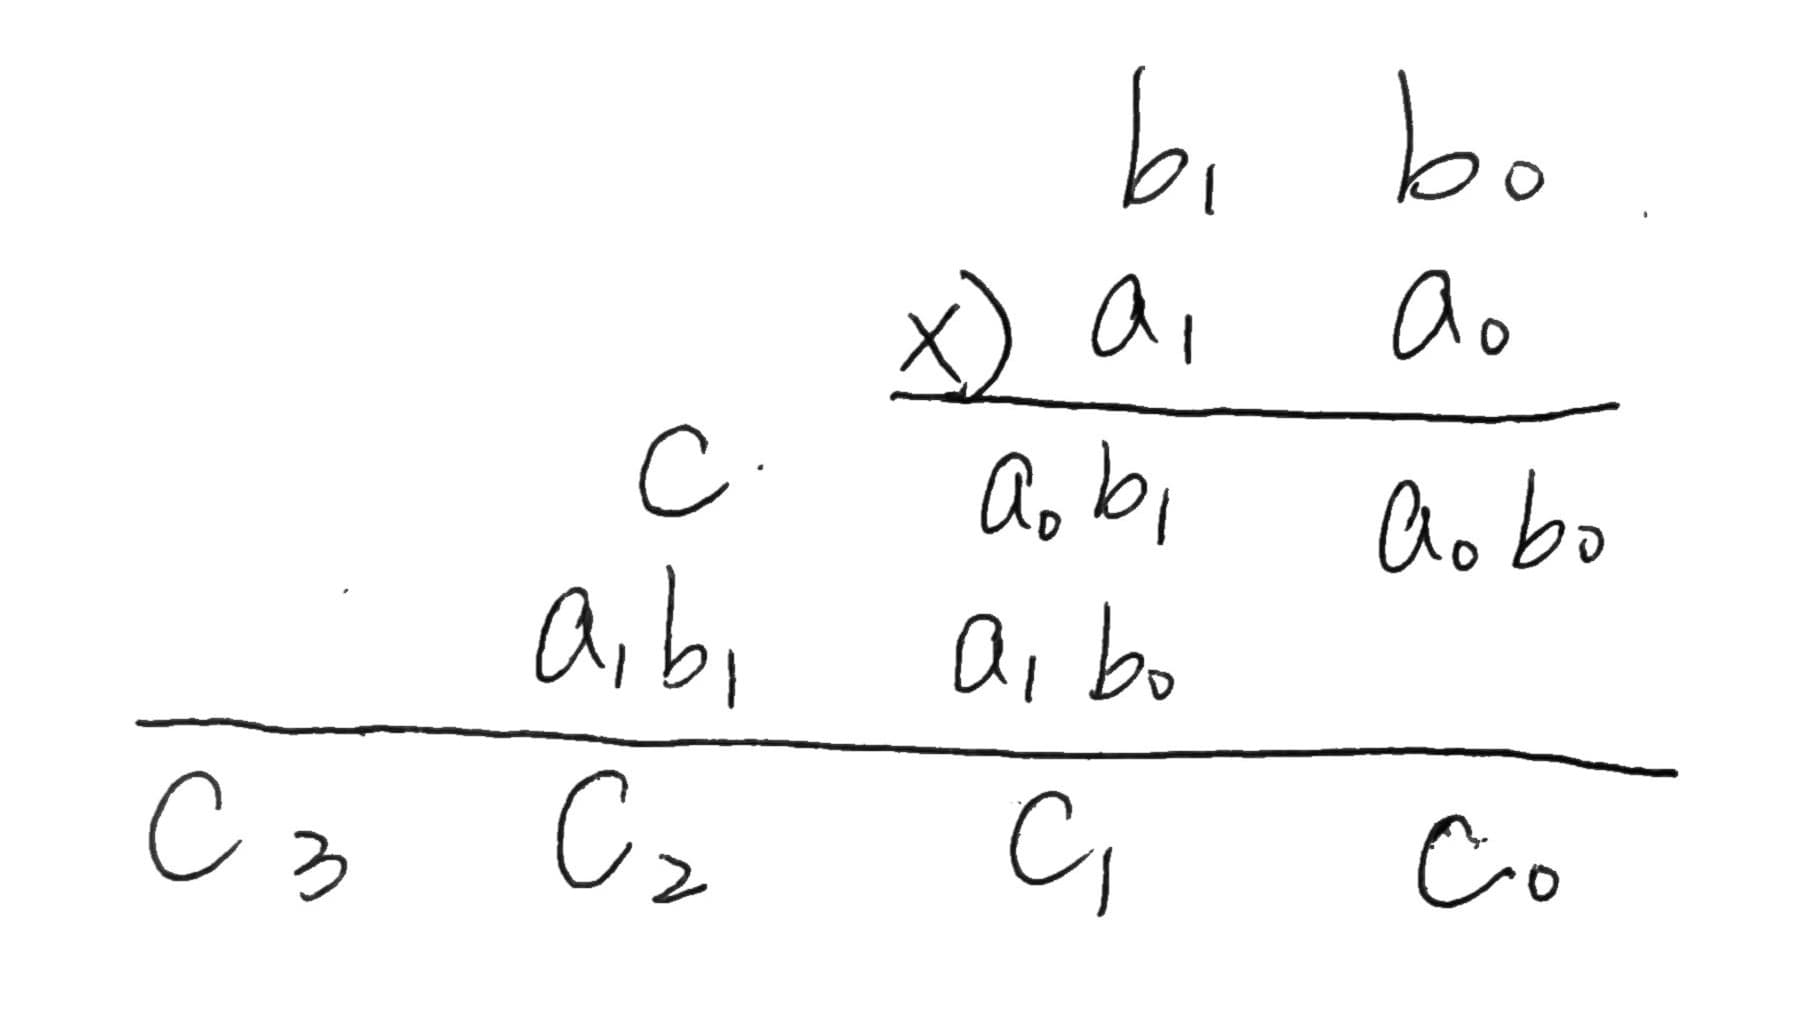 b₁ b₀
×) a₁ a₀
C a₀b₁ a₀b₀
a₁b₁ a₁b₀
C₃ C₂ C₁ C₀